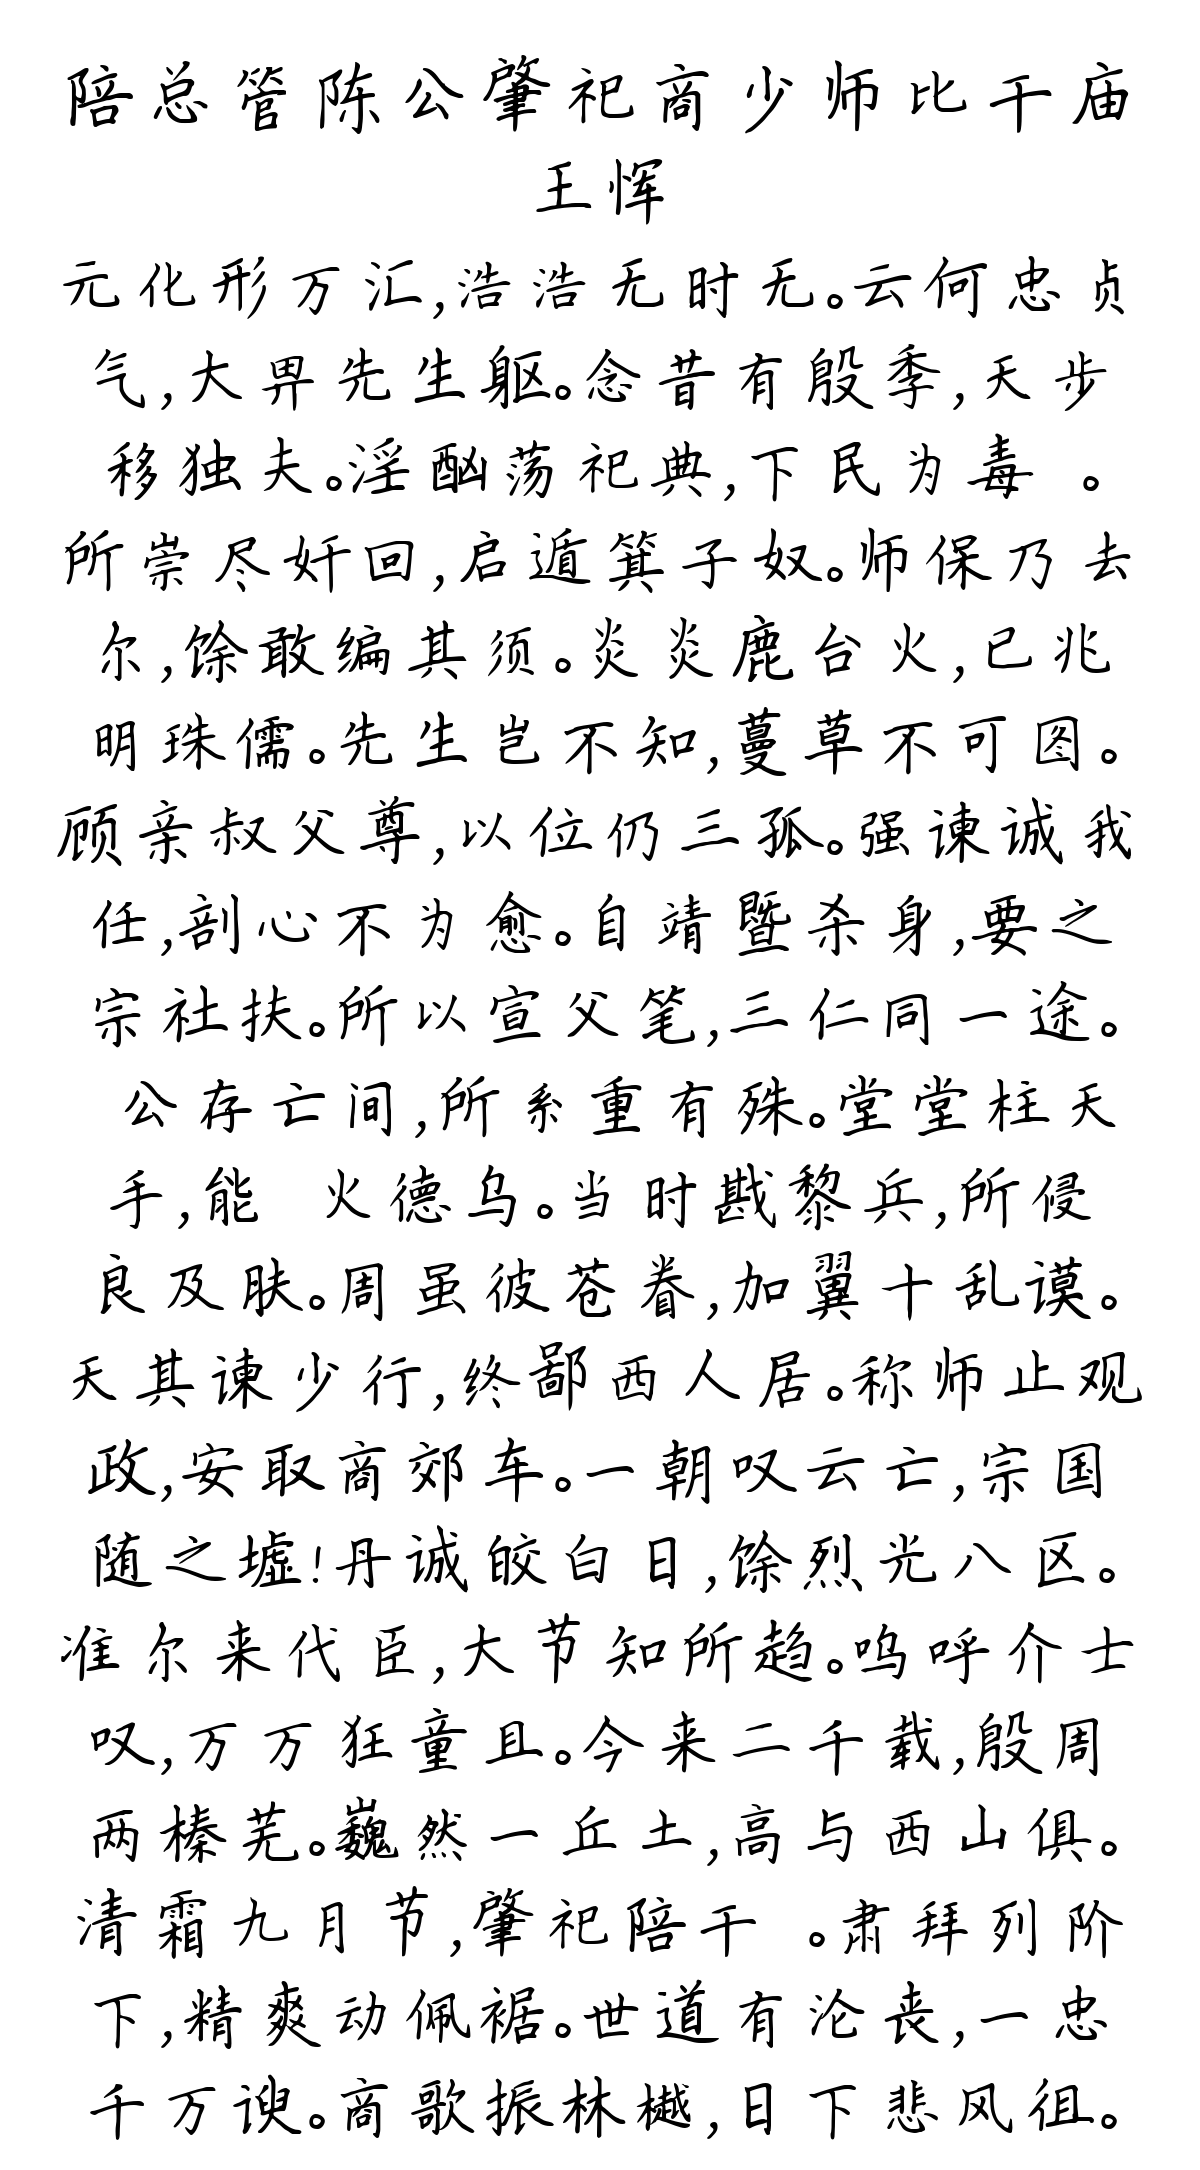 陪总管陈公肇祀商少师比干庙
王恽
元化形万汇,浩浩无时无。云何忠贞
气,大畀先生躯。念昔有殷季,天步
移独夫。淫酗荡祀典,下民为毒 。
所崇尽奸回,启遁箕子奴。师保乃去
尔,馀敢编其须。炎炎鹿台火,已兆
明珠儒。先生岂不知,蔓草不可图。
顾亲叔父尊,以位仍三孤。强谏诚我
任,剖心不为愈。自靖暨杀身,要之
宗社扶。所以宣父笔,三仁同一途。
公存亡间,所系重有殊。堂堂柱天
手,能 火德乌。当时戡黎兵,所侵
良及肤。周虽彼苍眷,加翼十乱谟。
天其谏少行,终鄙西人居。称师止观
政,安取商郊车。一朝叹云亡,宗国
随之墟!丹诚皎白日,馀烈光八区。
准尔来代臣,大节知所趋。呜呼介士
叹,万万狂童且。今来二千载,殷周
两榛芜。巍然一丘土,高与西山俱。
清霜九月节,肇祀陪干 。肃拜列阶
下,精爽动佩裾。世道有沦丧,一忠
千万谀。商歌振林樾,日下悲风徂。